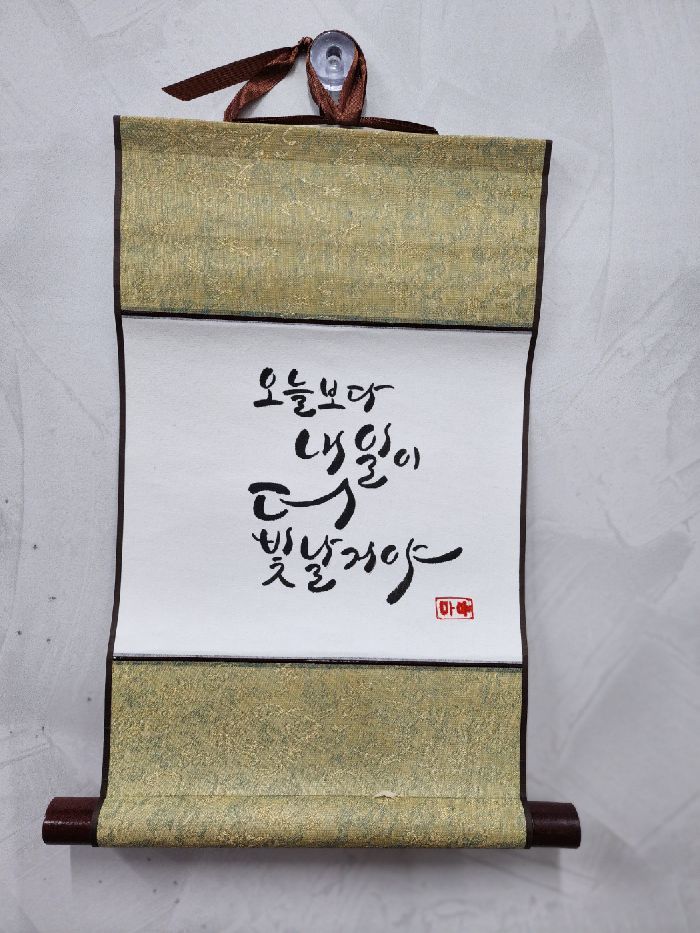 오늘보다
내일이
더
빛날거야
마야